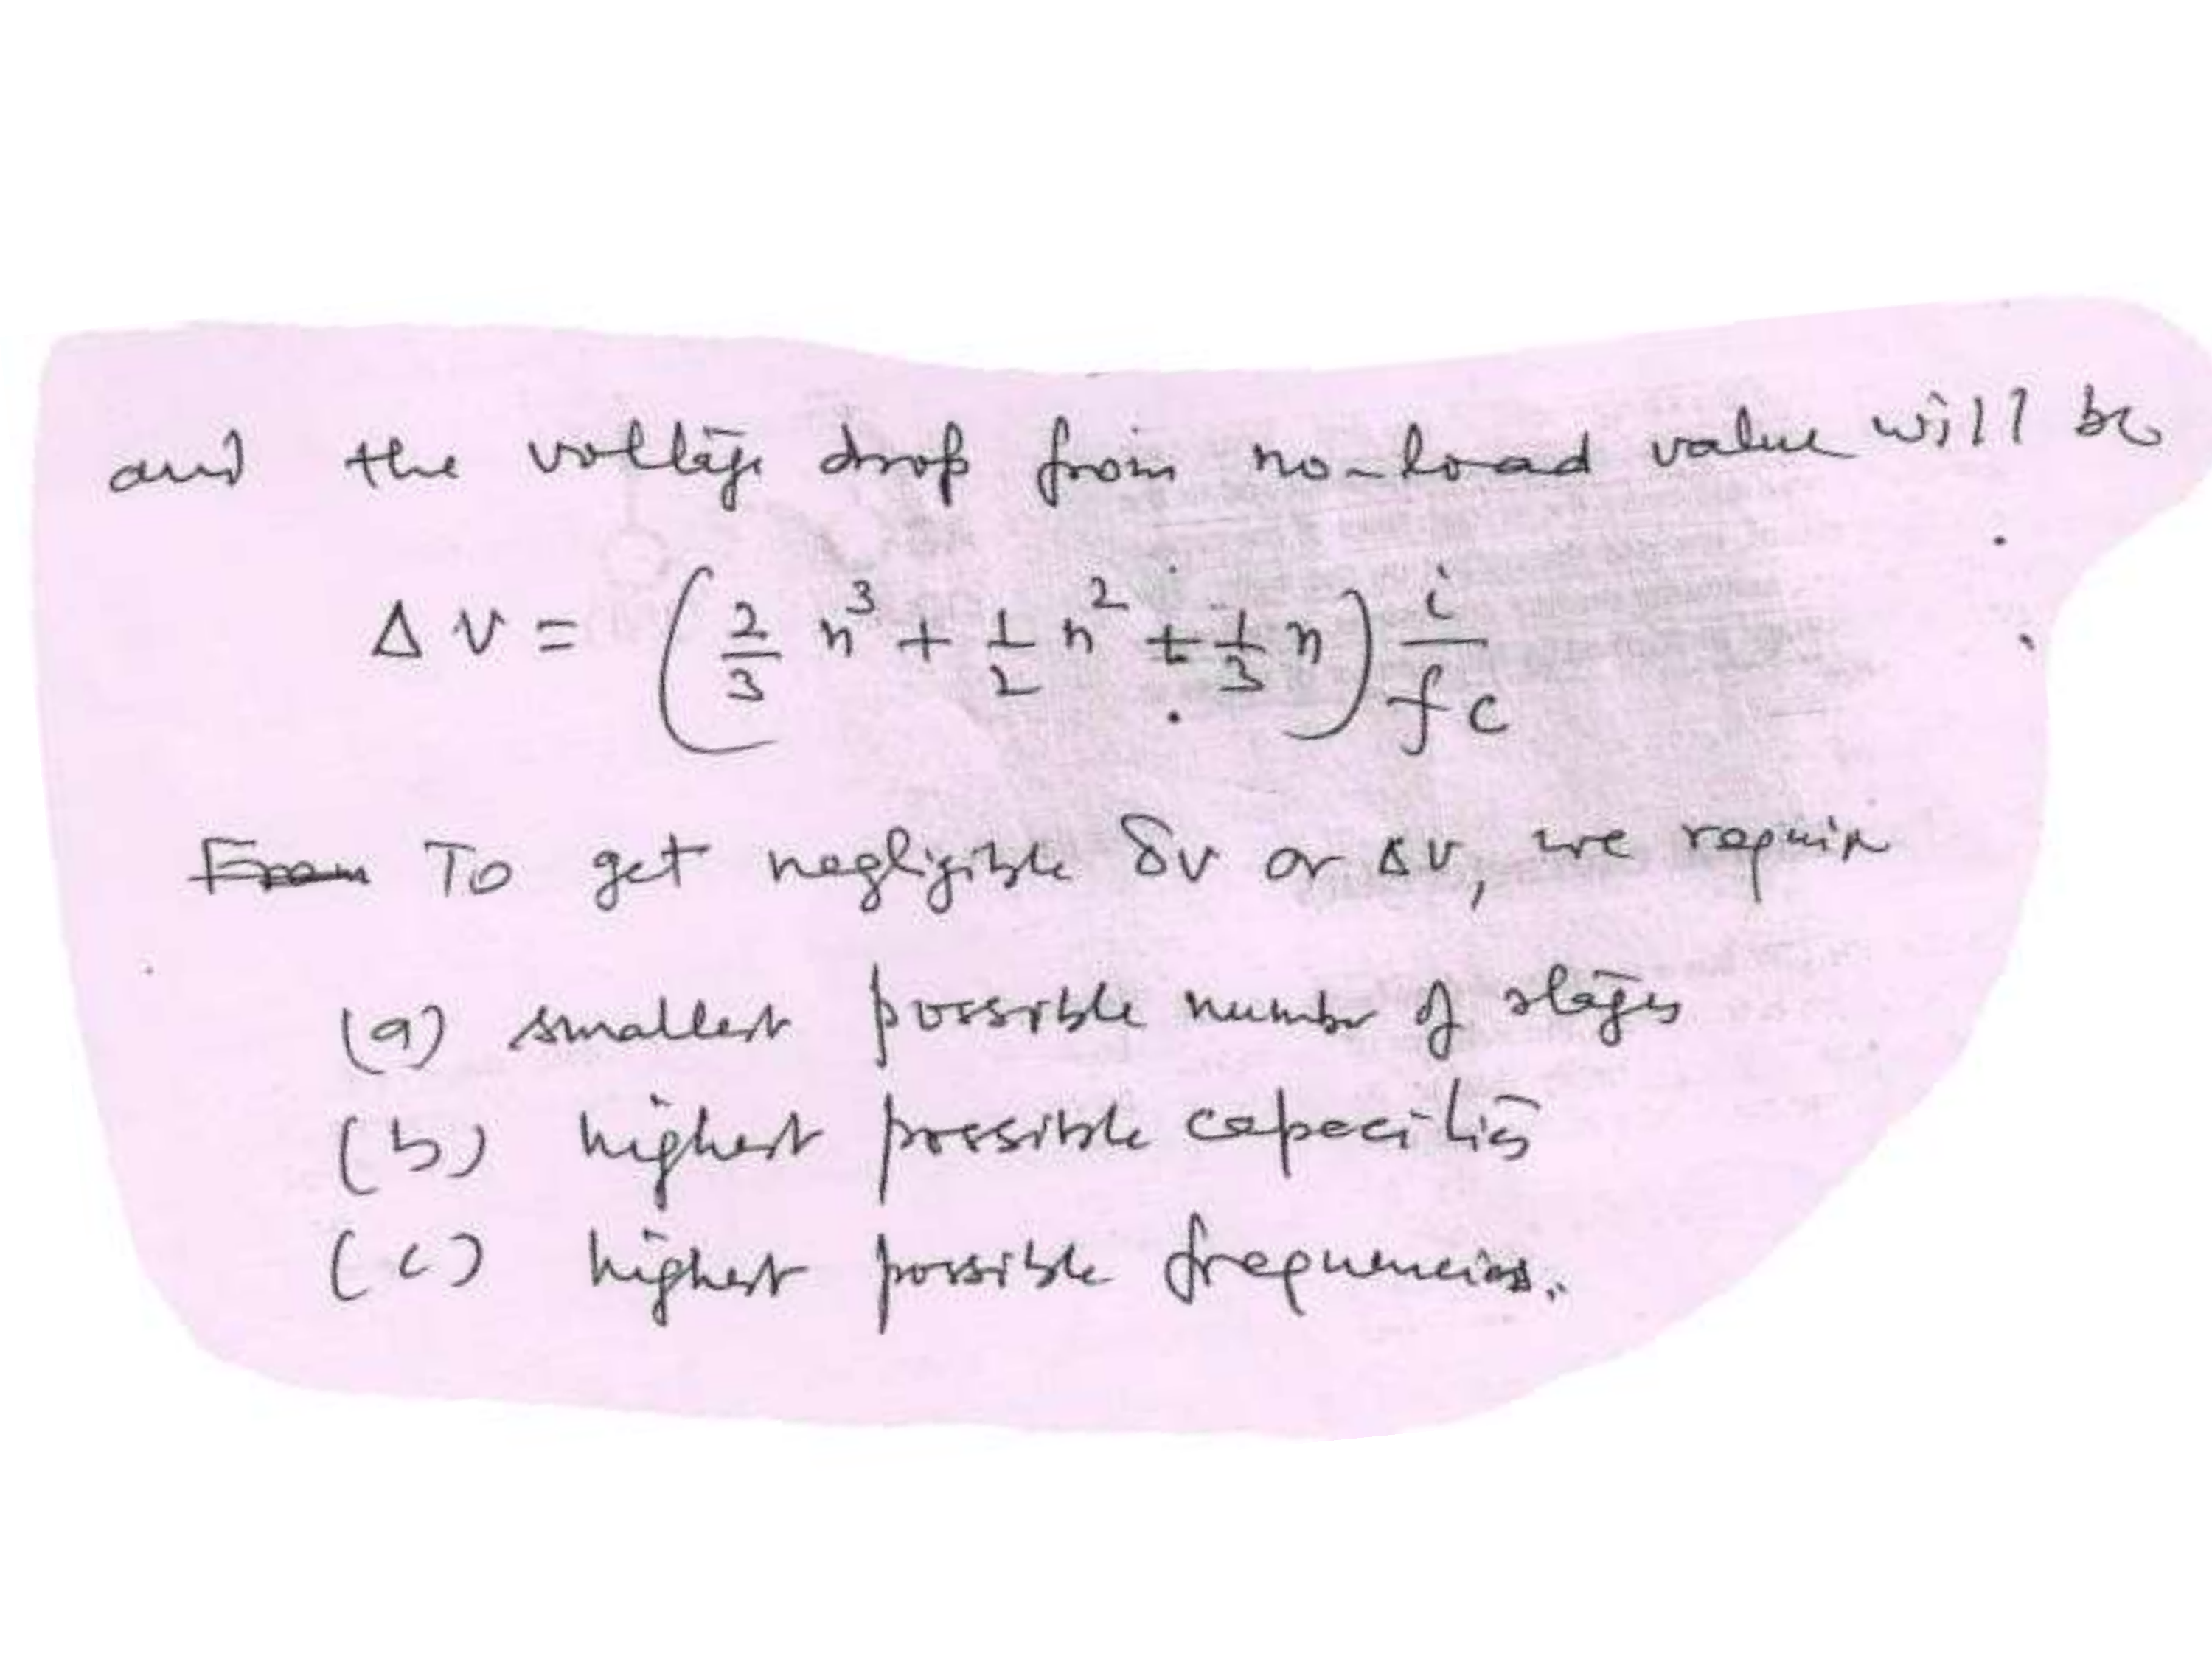 and the voltage drop from no-load value will be
Δv = (2/3 n³ + 1/2 n² + 1/3 n) i/fc
From To get negligible δv or Δv, we require
(a) smallest possible number of stages
(b) highest possible capacities
(c) highest possible frequencies.